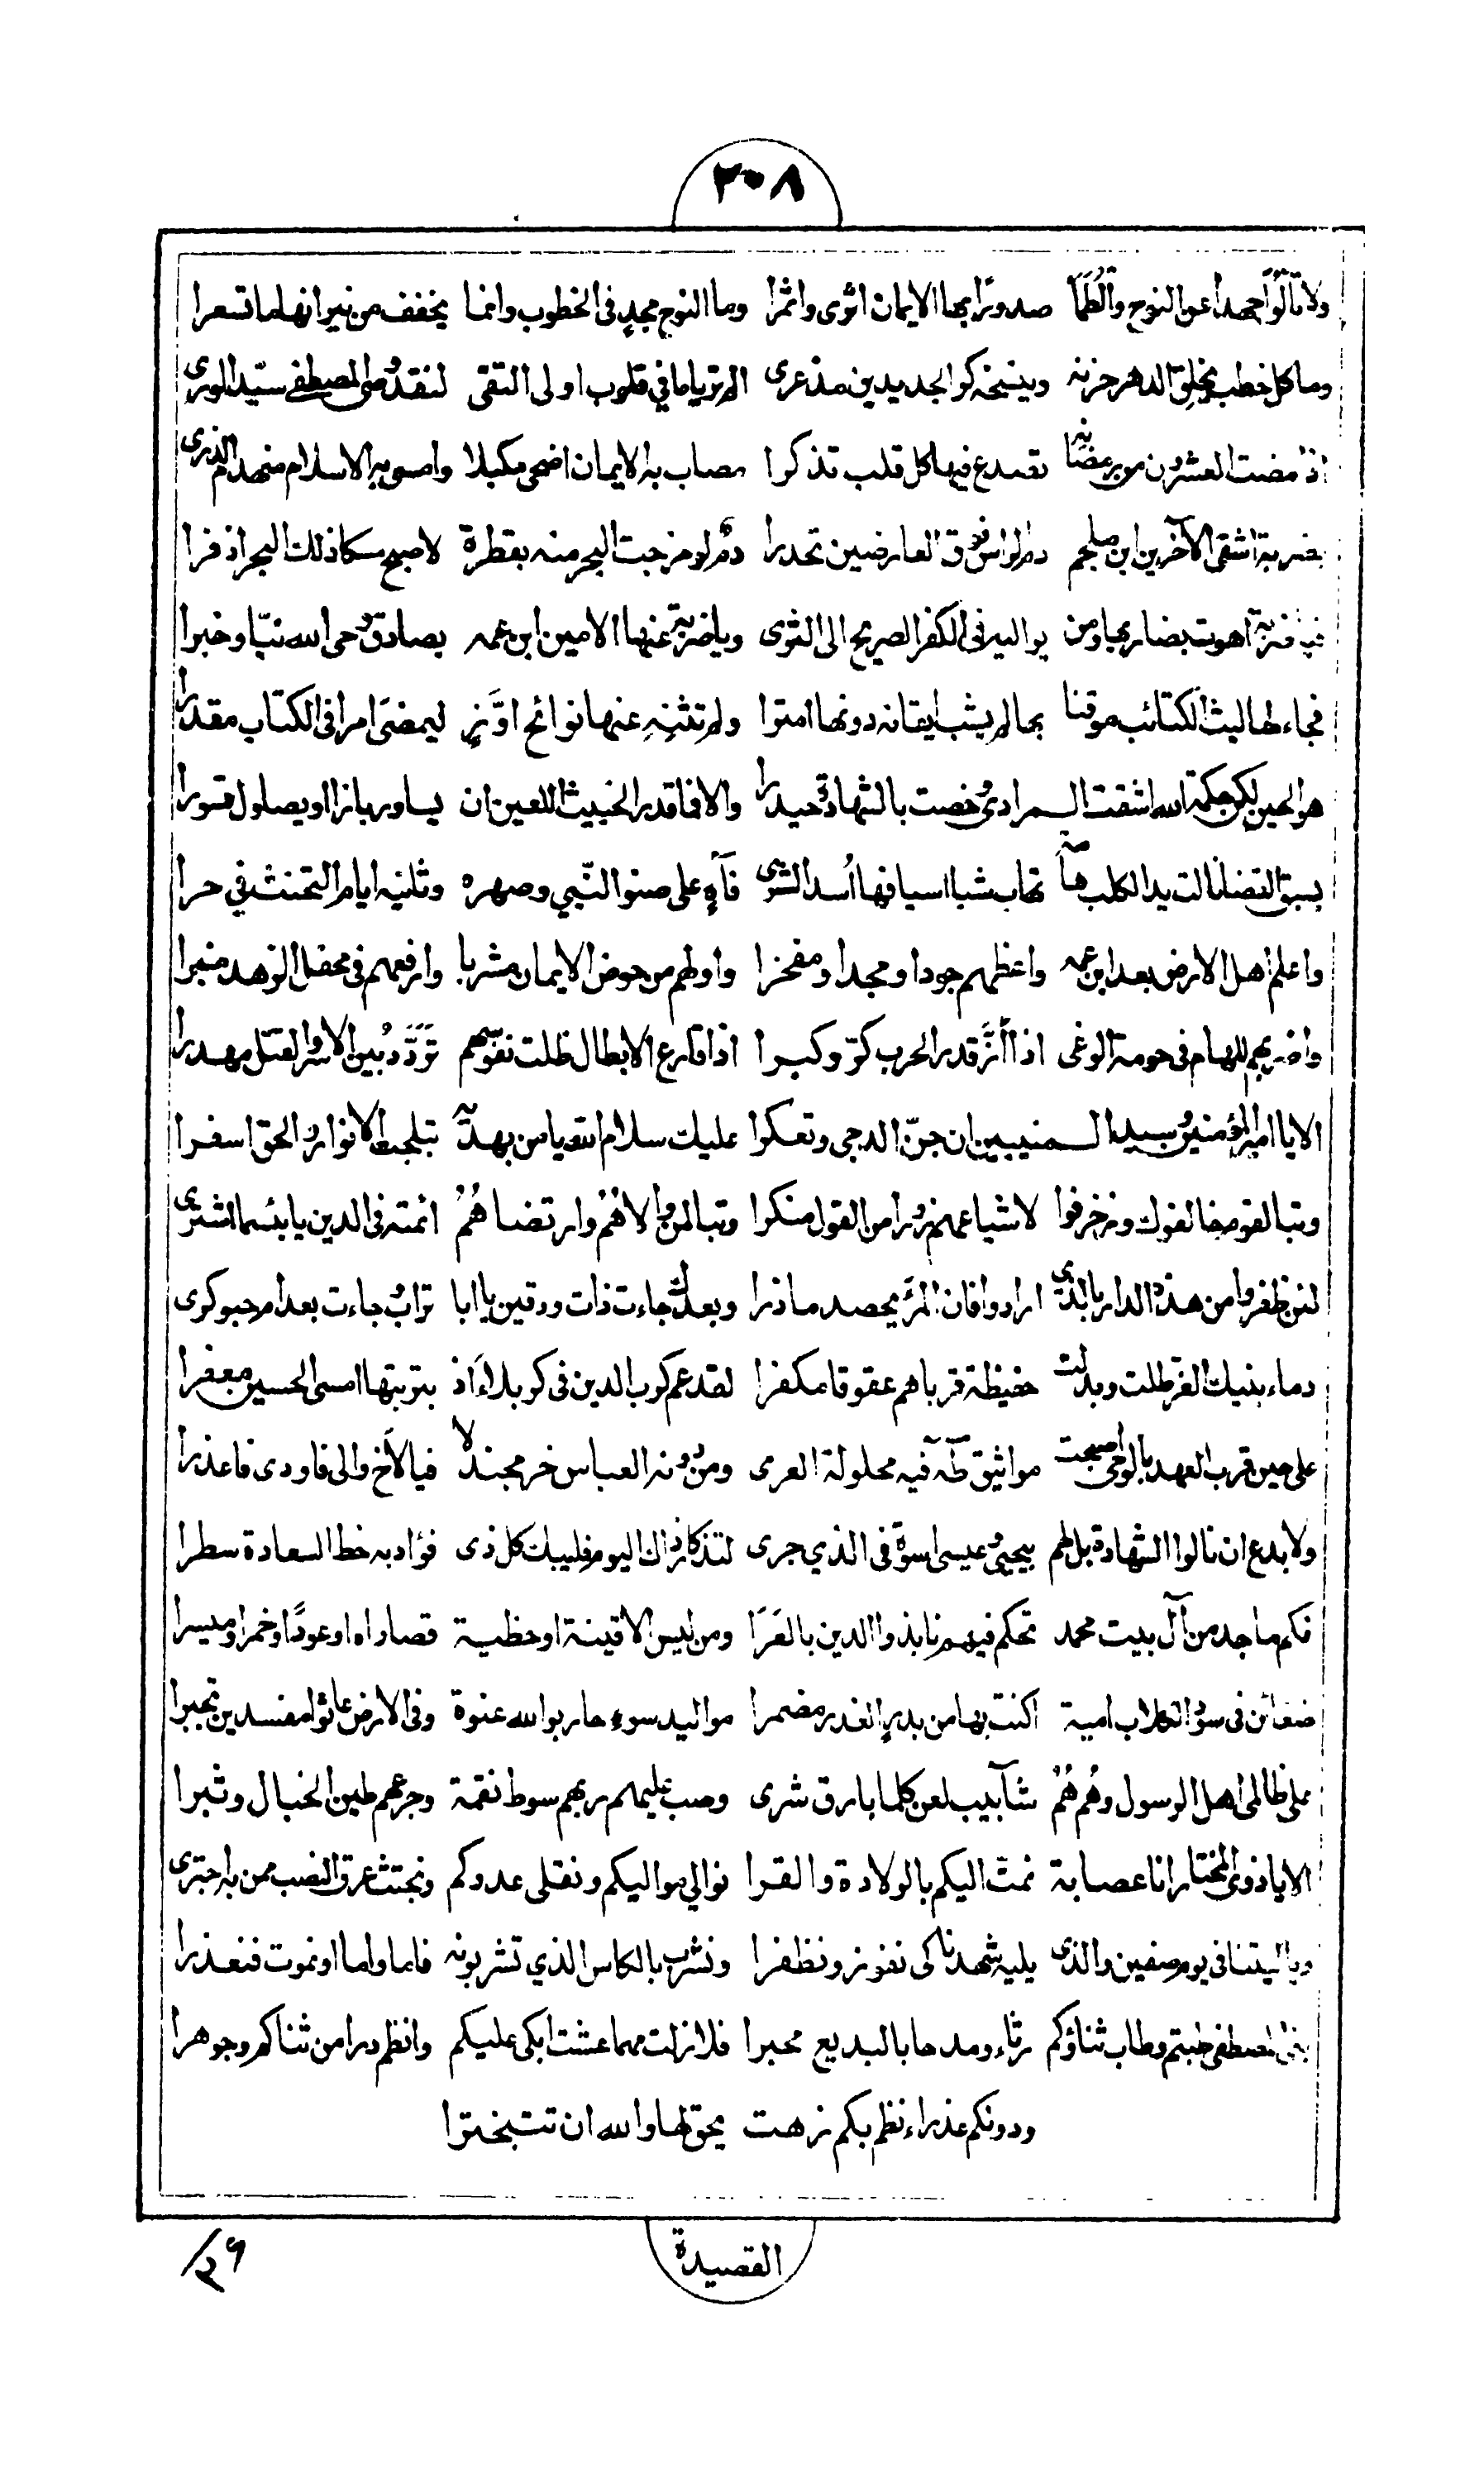 ٣٠٨
ولا تألوا جهدا عن النوح والطما صدورًا بها الايمان اثرى واثمرا وما النوح مجدٍ في الخطوب وانما يخفف من نيرانها ما تسعرا
وما كل خطب يخلق الدهر حزنه وينسيخه كر الجديدين مذ عرى الم تريا ما في قلوب اولى التقى لفقد وصى المصطفى سيّد الورى
اذا مضت العشرون من رمضانه تصدع فيها كل قلب تذكرا مصاب به الايمان اضحى مكبلا وامسى به الاسلام منهدم الذرى
بضربة اشقى الآخرين ابن ملجم دم الراس فوق العارضين تحدرا دمٌ لو مزجت البحر منه بقطرة لاصبح مسكا ذلك البحر اذفرا
ضربة اهوت بضاربها ومن يواليه في الكفر الصريح الى الثرى ويا ضربة عنها الامين ابن عمه بصادق وحى الله نبّا وخبرا
فجاء لها ليث الكتائب موقنا بها لم يشب ايقانه دونها امترا ولم تثنهِ عنها نوائح اوَزٍ ليمضى امرا في الكتاب مقدرا
هو الحين لكن حكمة الله اشقت المرادى وخصت بالشهادة حيدرا والا فما قدر الخبيث اللعين ان يساور بازا او يصاول قسورا
بسبق القضا نالت يد الكلب هامة تهاب شبا اسيافها اُسد الشرى فآهٍ على صنو النّبي وصهره وثانيه ايام التحنث في حرا
واعلم اهل الارض بعد ابن عمه واعظمهم جودا ومجدا ومفخرا واولهم من حوض الايمان مشربا وارفعهم في محفل الزهد منبرا
واضربهم للهام في حومة الوغى اذا أزَّ قدر الحرب كرّ وكبرا اذا قارع الابطال ظلت نفوسهم تَرَدَّدُ بين الاسر والقتل مهدرا
الا يا امير المؤمنين وسيد المنيبين ان جنّ الدجى وتعكرا عليك سلام الله يا من بهديه تبلجت الانوار والحق اسفرا
وتبا لقوم خالفوك وزخرفوا لاشياعهم زورا من القول منكرا وتبا لمن والاهُمُ وارتضاهُمُ ائمته في الدين يا بئسما اشترى
لئن ظفروا من هذه الدار بالذى ارادوا فان المرء يحصد ما ذرا وبعدك جاءت ذات ودقين يا ابا ترابٍ جاءت بعد ام حبو كرى
دماء بنيك الغر طلت وبدلت حفيظة قرباهم عقوقا مكفرا لقد عم كرب الدين في كربلاءَ اذ بتربتها امسى الحسين معفرا
على حين قرب العهد بالوحى اصبحت مواثيق طٰه فيه محلولة العرى ومن دونه العباس خر مجندلا فيا لأخ والى فاودى فاعذرا
ولا بدع ان نالوا الشهادة بل لهم بيحيى وعيسى اسوة في الذي جرى لتذكار ذاك اليوم فليبك كل ذى فؤاد به خط السعادة سطرا
فكم ماجد من آل بيت محمد تحكم فيهم نابذوا الدين بالعَرَا ومن ليس الا قينة او حظية قصاراه او عودًا وخمرا وميسرا
ضغائن في سود الكلاب امية اكنت بها من بدرِ الغدر مضمرا مواليد سوءٍ حاربوا الله عنوة وفي الارض عاثوا مفسدين تجبرا
على ظالمى اهل الرسول وهُم هُمُ شآبيب لعن كلما بارق شرى وصب عليهم ربهم سوط نقمة وجرعهم طين الخبال وثبرا
الا يا ذوى المختار انا عصابة نمتّ اليكم بالولادة والقرا نوالي مواليكم ونقلى عدوكم ونجتث عرق النصب ممن به اجترى
ويا ليتنا في يوم صفين والذى يليه شهدنا كى نفوز ونظفرا ونشرب بالكاس الذي تشربونه فاما واما او نموت فنعذرا
بنى المصطفى طبتم وطاب ثناؤكم رثاء ومدحا بالبديع محبرا فلا زلت مهما عشت ابكى عليكم وانظم درا من ثناكم وجوهرا
ودونكم عذراء نظم بكم زهت يحق لها والله ان تتبخترا
القصيدة